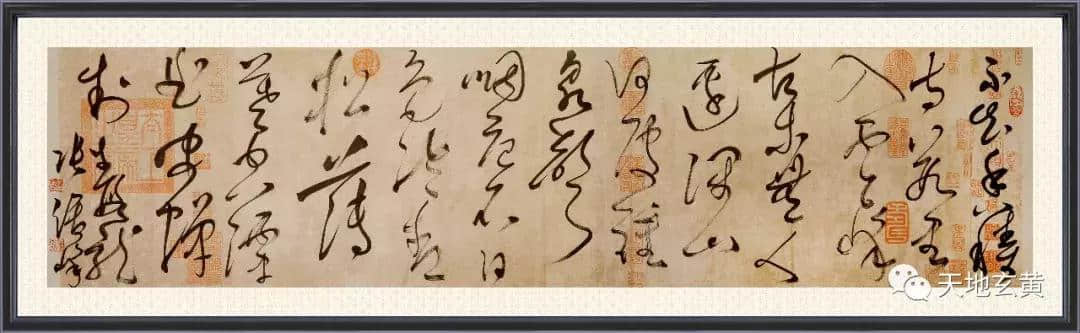 不知香積
寺數里
入雲峰
古木無人
逕深山
何處鐘
泉聲
咽危石日
色冷青
松薄
暮空潭
曲安禪
制毒龍
天地玄黄